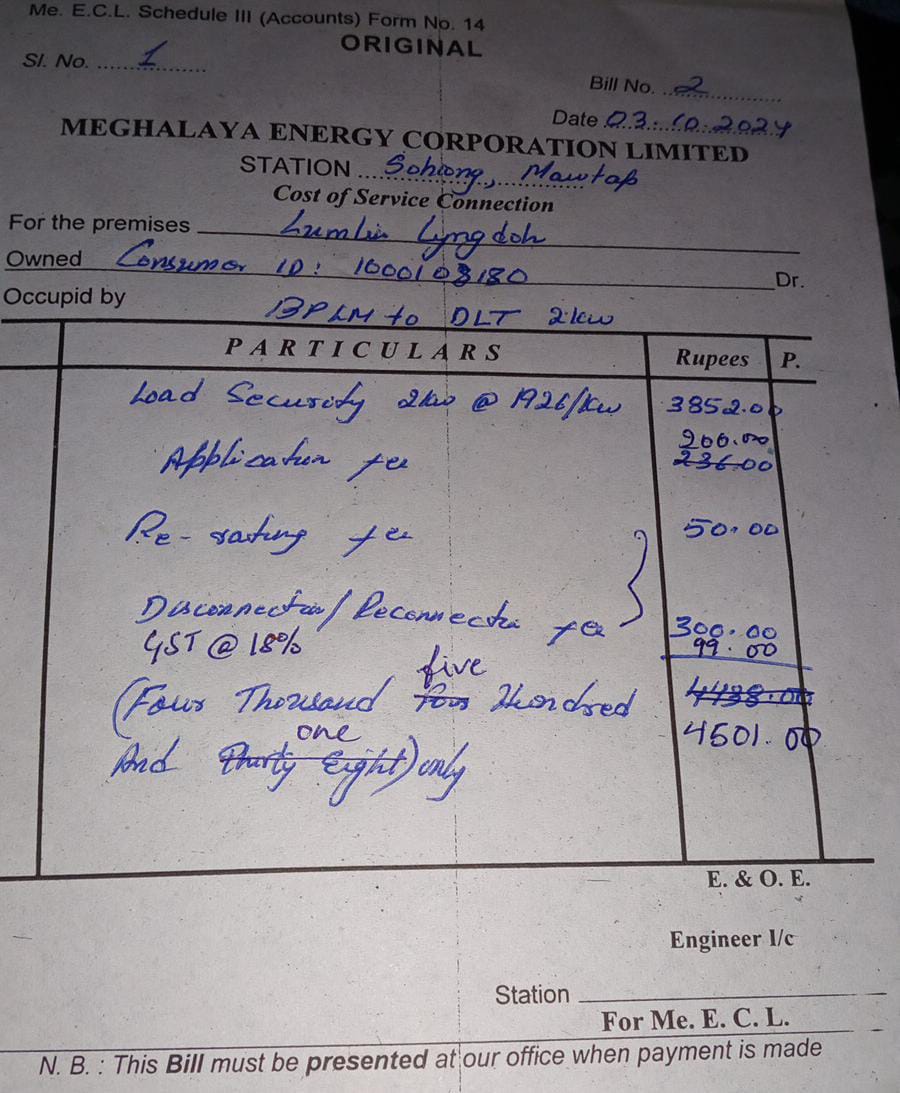 Me. E.C.L. Schedule III (Accounts) Form No. 14
ORIGINAL
Sl. No. ...... 1 ........
Bill No. ...2...........
Date 03.10.2024
MEGHALAYA ENERGY CORPORATION LIMITED
STATION ....Sohiong, Mawtap
Cost of Service Connection
For the premises Lumlin Lyngdoh
Owned Consumer ID: 1000103180 Dr.
Occupid by
BPLM to DLT 2kw
PARTICULARS Rupees P.
Load Security 2kw @ 1926/kw 3852.00
200.00
Application fee 236.00
Re-rating fee 50.00
Disconnection/Reconnection fee 300.00
GST @ 18% 99.00
five
(Four Thousand Four Hundred 4438.00
one 4501.00
And Thirty Eight) only
E. & O. E.
Engineer I/c
Station
For Me. E. C. L.
N. B. : This Bill must be presented at our office when payment is made